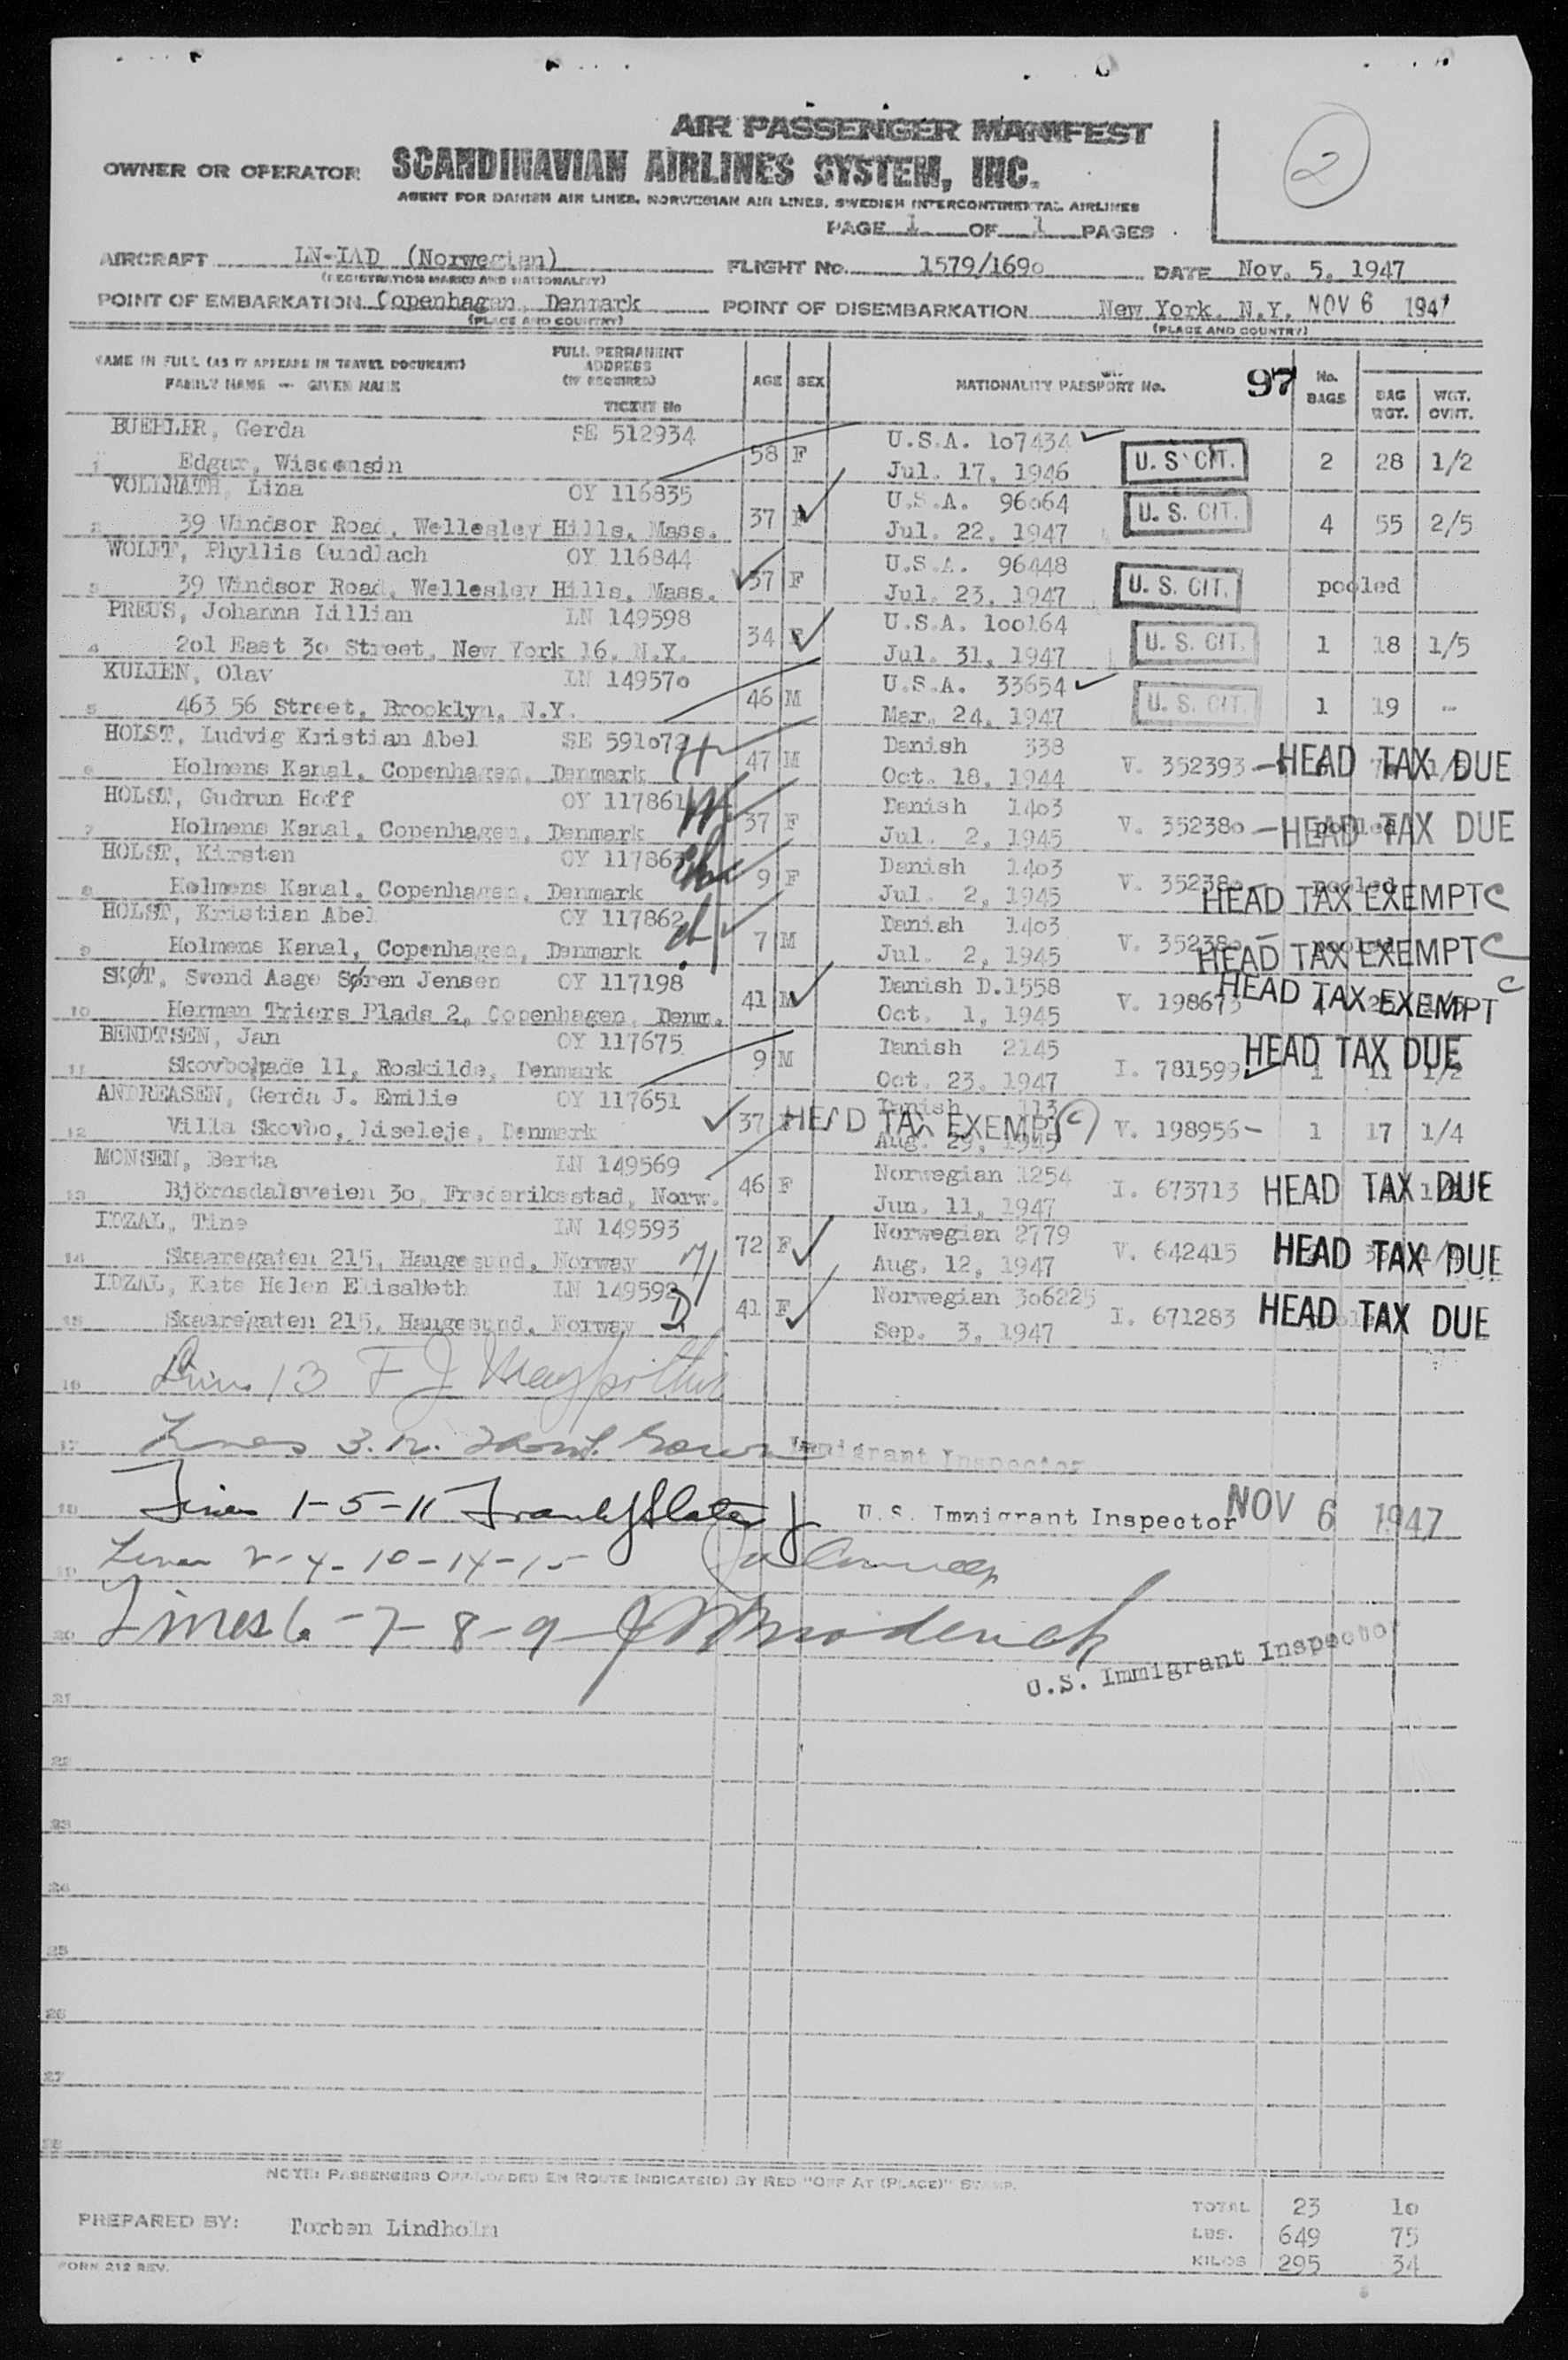 2
AIR PASSENGER MANIFEST
OWNER OR OPERATOR SCANDINAVIAN AIRLINES SYSTEM, INC.
AGENT FOR DANISH AIR LINES, NORWEGIAN AIR LINES, SWEDISH INTERCONTINENTAL AIRLINES
PAGE 1 OF 1 PAGES
AIRCRAFT LN-IAD (Norwegian) FLIGHT No. 1579/169o DATE Nov. 5, 1947
(REGISTRATION MARKS AND NATIONALITY)
POINT OF EMBARKATION Copenhagen, Denmark POINT OF DISEMBARKATION New York, N.Y. NOV 6 1947
(PLACE AND COUNTRY) (PLACE AND COUNTRY)
NAME IN FULL (AS IT APPEARS IN TRAVEL DOCUMENT) FULL PERMANENT ADDRESS (IF REQUIRED) AGE SEX NATIONALITY PASSPORT No. 97 No. BAGS BAG WGT. WGT. OVNT.
FAMILY NAME — GIVEN NAME TICKET No
BUEHLER, Gerda SE 512934 U.S.A. 1o7434
1 Edgar, Wisconsin 58 F Jul. 17, 1946 U.S. CIT. 2 28 1/2
VOLLRATH, Lina OY 116835 U.S.A. 96o64
2 39 Windsor Road, Wellesley Hills, Mass. 37 F Jul. 22, 1947 U.S. CIT. 4 55 2/5
WOLJT, Phyllis Gundlach OY 116844 U.S.A. 96448
3 39 Windsor Road, Wellesley Hills, Mass. 37 F Jul. 23, 1947 U.S. CIT. pooled
PREUS, Johanna Lillian LN 149598 U.S.A. 1oo164
4 2o1 East 3o Street, New York 16, N.Y. 34 F Jul. 31, 1947 U.S. CIT. 1 18 1/5
KULIEN, Olav LN 14957o U.S.A. 33654
5 463 56 Street, Brooklyn, N.Y. 46 M Mar. 24, 1947 U.S. CIT. 1 19 --
HOLST, Ludvig Kristian Abel SE 591o72 Danish 338
6 Holmens Kanal, Copenhagen, Denmark 47 M Oct. 18, 1944 V. 352393 HEAD TAX DUE
HOLST, Gudrun Hoff OY 117861 Danish 14o3
7 Holmens Kanal, Copenhagen, Denmark 37 F Jul. 2, 1945 V. 35238o pooled HEAD TAX DUE
HOLST, Kirsten OY 117863 Danish 14o3
8 Holmens Kanal, Copenhagen, Denmark 9 F Jul. 2, 1945 V. 35238o pooled HEAD TAX EXEMPT C
HOLST, Kristian Abel OY 117862 Danish 14o3
9 Holmens Kanal, Copenhagen, Denmark 7 M Jul. 2, 1945 V. 35238o pooled HEAD TAX EXEMPT C
SKØT, Svend Aage Søren Jensen OY 117198 Danish D.1558
10 Herman Triers Plads 2, Copenhagen, Denm. 41 M Oct. 1, 1945 V. 198673 HEAD TAX EXEMPT C
BENDTSEN, Jan OY 117675 Danish 2145
11 11, Roskilde, Denmark 9 M Oct. 23, 1947 I. 781599 1 11 1/2 HEAD TAX DUE
ANDREASEN, Gerda J. Emilie OY 117651 Danish 113
12 Villa Skovbo, Liseleje, Denmark 37 HEAD TAX EXEMPT (C) Aug. 29, 1945 V. 198956 1 17 1/4
MONSEN, Berta LN 149569 Norwegian 1254
13 Björnsdalsveien 3o, Frederiksstad, Norw. 46 F Jun. 11, 1947 I. 673713 HEAD TAX DUE
IDZAL, Tine LN 149593 Norwegian 2779
14 Skaaregaten 215, Haugesund, Norway 72 F Aug. 12, 1947 V. 642415 HEAD TAX DUE
IDZAL, Kate Helen Elisabeth LN 149592 Norwegian 3o6225
15 Skaaregaten 215, Haugesund, Norway 41 F Sep. 3, 1947 I. 671283 HEAD TAX DUE
16 Line 13 F J
17 Lines 3.12. Immigrant Inspector
18 Lines 1-5-11 Frank J Slater Jr U.S. Immigrant Inspector NOV 6 1947
19 Lines 2-4-10-14-15
20 Lines 6-7-8-9 U.S. Immigrant Inspector
21
22
23
24
25
26
27
28
NOTE: PASSENGERS OFF-LOADED EN ROUTE INDICATE(D) BY RED "OFF AT (PLACE)" STAMP.
TOTAL 23 1o
PREPARED BY: Torben Lindholm LBS. 649 75
FORM 212 REV. KILOS 295 34